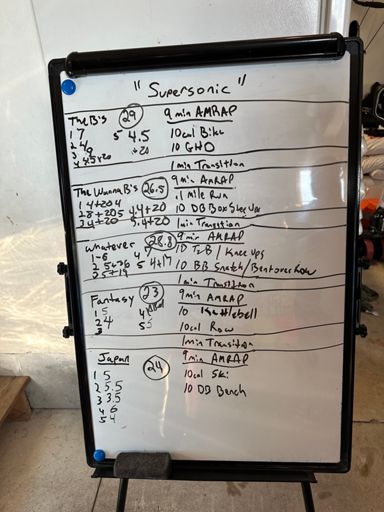 "Supersonic"
The B's 29 9 min AMRAP
1 7 5 4.5 10cal Bike
2 4 +20 10 GHD
3 9
4 4.5+20 1min Transition
The WannaB's 26.5 9min AMRAP
1 4+20 4 .1 mile Run
2 8+20 5 4.4+20 10 DB Box Step Ups
3 4+20 5.4+20 1min Transition
Whatever 28.8 9 min AMRAP
1-6 4 7 10 T2B / Knee Ups
2 5+36 5 4+17 10 BB Snatch / Bent over Row
3 5+19
1min Transition
Fantasy 23 9min AMRAP
1 5 10 Kettlebell
2 4 5 5 10cal Row
3
1min Transition
Japan 24 9min AMRAP
1 5 10cal Ski
2 5.5 10 DB Bench
3 3.5
4 6
5 4